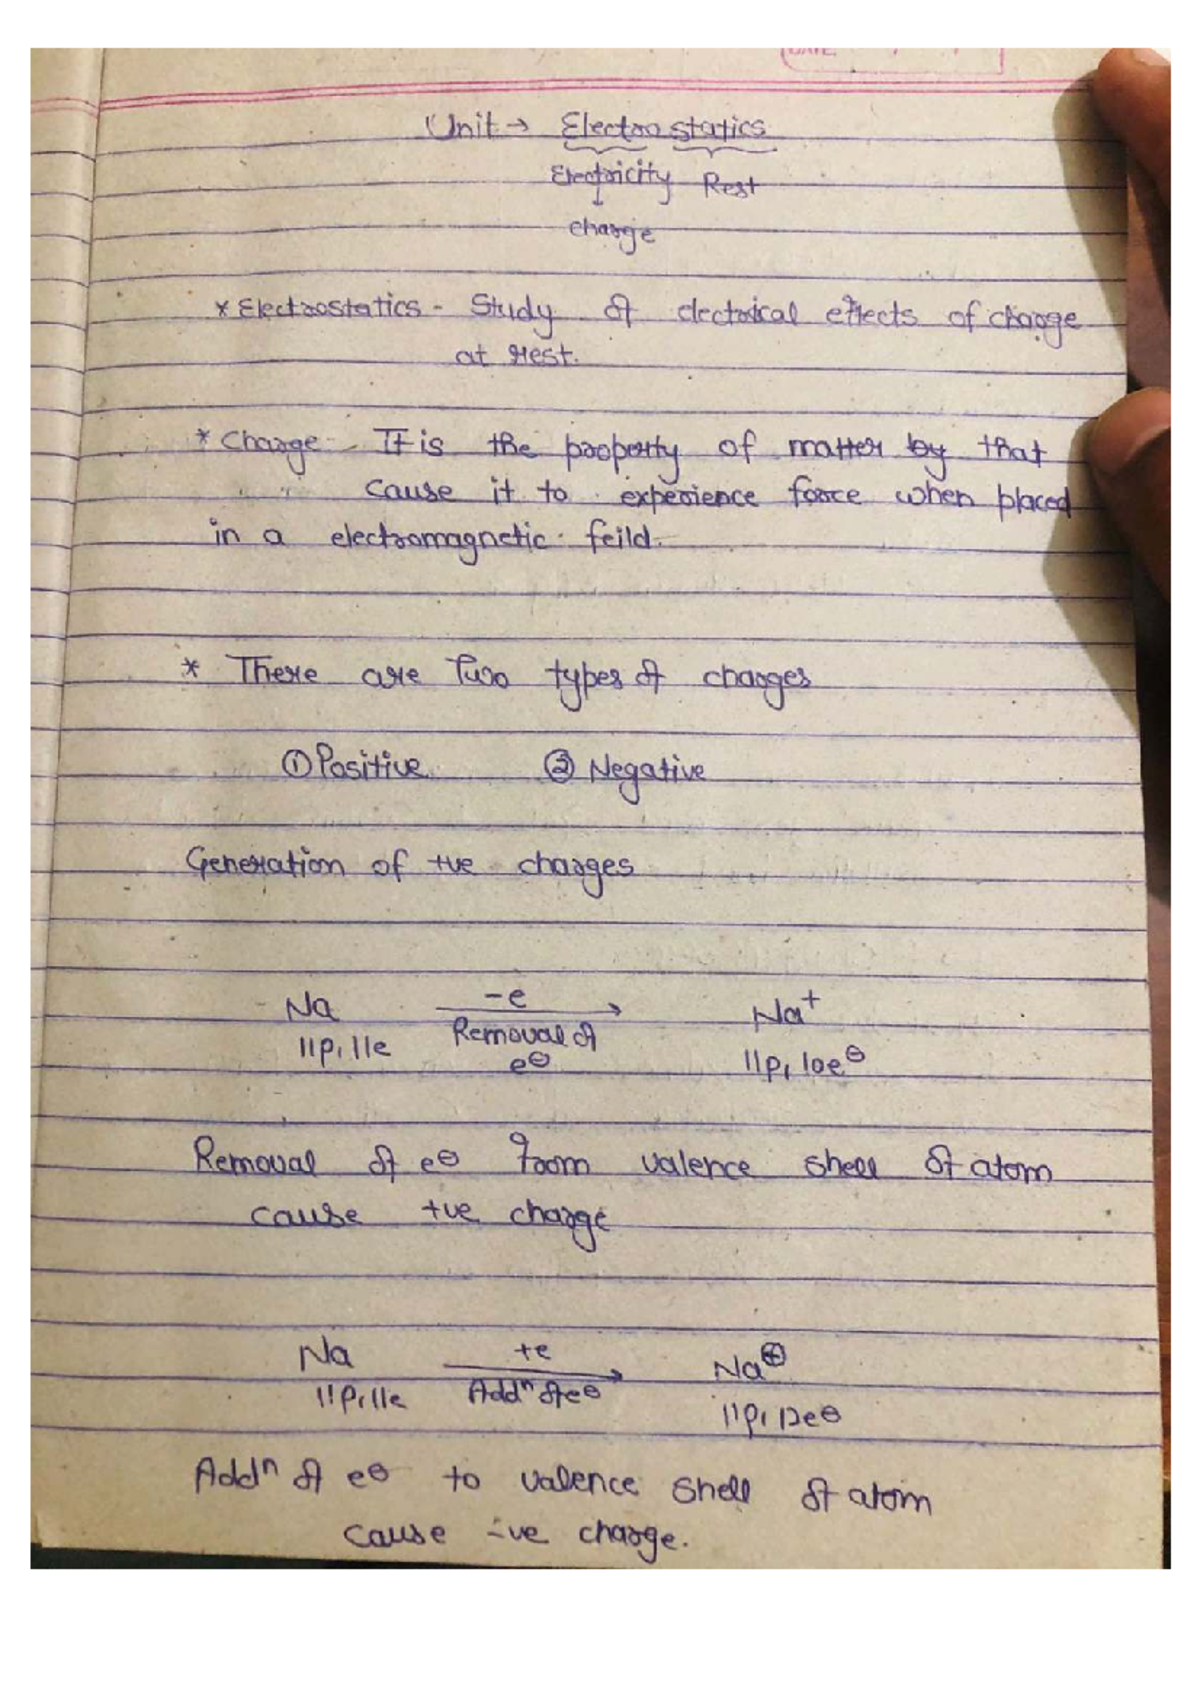 DATE
Unit → Electrostatics
Electricity Rest
charge
* Electrostatics - Study of electrical effects of charge
at rest.
* Charge - It is the property of matter by that
cause it to experience force when placed
in a electromagnetic feild.
* There are Two types of charges
① Positive ② Negative
Generation of +ve charges
Na -e Na⁺
11p, 11e Removal of e⊖ 11p, 10e⊖
Removal of e⊖ from valence shell of atom
cause +ve charge
Na +e Na⊕
11p, 11e Addⁿ of e⊖ 11p, 12e⊖
Addⁿ of e⊖ to valence shell of atom
cause -ve charge.